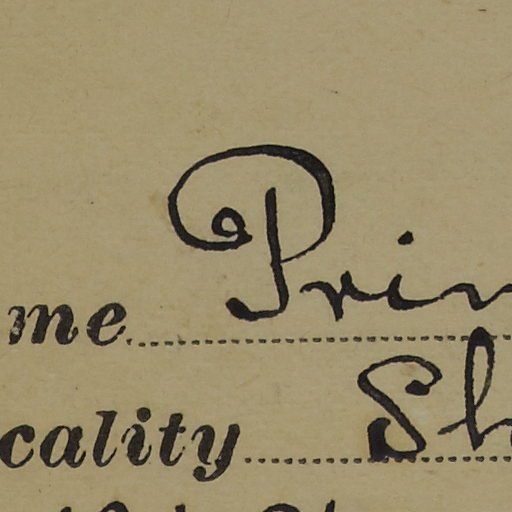 me Prin
cality Sh